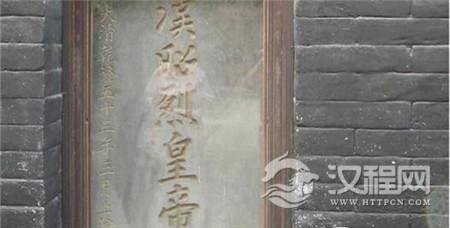 漢昭烈皇帝
大清乾隆五十三年
汉程网
WWW.HTTPCN.COM